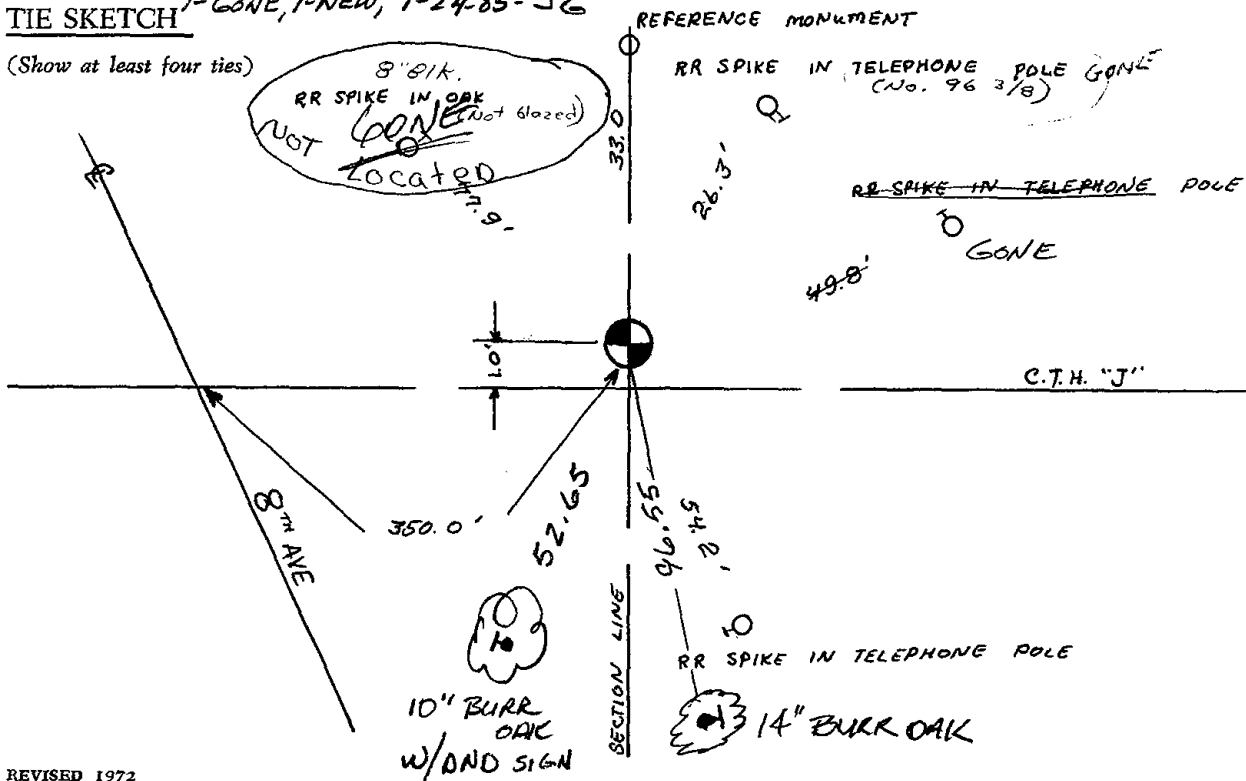 TIE SKETCH 1-GONE, 1-NEW, 1-24-85-JG
(Show at least four ties)
REFERENCE MONUMENT
8" Blk.
RR SPIKE IN OAK
GONE (Not blazed)
NOT
Located
47.9'
33.0
RR SPIKE IN TELEPHONE POLE GONE
(No. 96 3/8)
26.3'
RR SPIKE IN TELEPHONE POLE
GONE
49.8'
1.0'
C.T.H. "J"
8TH AVE
350.0'
52.65
96.55
54.2'
SECTION LINE
RR SPIKE IN TELEPHONE POLE
10" BURR
OAK
W/AND SIGN
14" BURR OAK
REVISED 1972